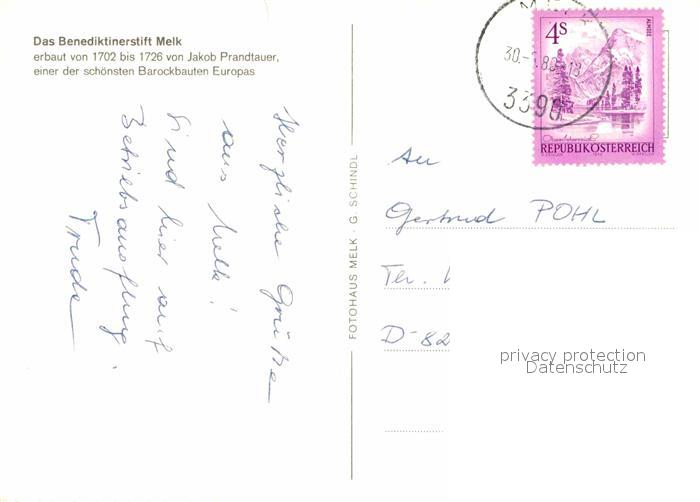 Das Benediktinerstift Melk
erbaut von 1702 bis 1726 von Jakob Prandtauer,
einer der schönsten Barockbauten Europas
Herzliche Grüße
aus Melk!
Sind hier auf
Betriebsausflug.
Trude
FOTOHAUS MELK · G. SCHINDL
30. 80-18
3390
4S
ALMSEE
REPUBLIK ÖSTERREICH
An
Gertrud POHL
D-82
privacy protection
Datenschutz